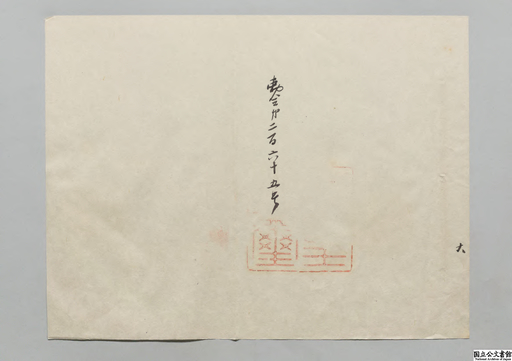 大
勅令第二百六十五号
国立公文書館
National Archives of Japan